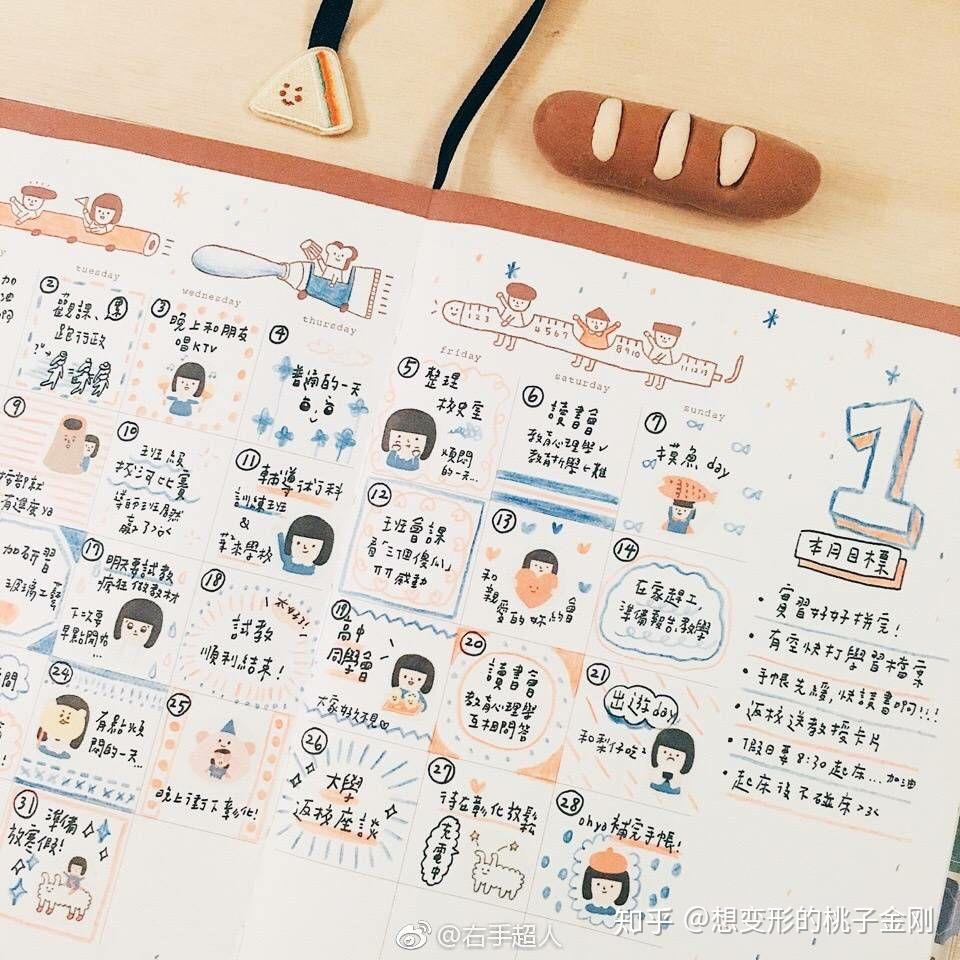 tuesday
wednesday
thursday
friday
saturday
sunday
1 2 3
4 5 6 7
8 9 10
11 12 13
②
觀課、累
跑行政
③
晚上和朋友
唱KTV
④
普通的一天
⑤
整理
校史室
煩悶
的一天...
⑥
讀書會
教育心理學✓
教育哲學←難
⑦
摸魚 day
⑨
⑩
班級
拔河比賽
導師班居然
贏了
⑪
輔導
訓練班
&
學校
⑫
班會課
看「三個傻瓜」
感動
⑬
和
親愛的妳約會
⑭
在家趕工,
準備報告、教學
加研習
玻璃工藝
⑰
明天要試教
瘋狂做教材
下次要
早點開始...
⑱
太好了!
試教
順利結束!
⑲
高中
同學會
大家好好不見♡
⑳
讀書會
教育心理學
互相問答
㉑
出遊day
和梨仔吃
㉔
有點煩
悶的一天...
㉕
晚上衝下彰化!
㉖
大學
返校座談
㉗
待在彰化放鬆
充電中
㉘
ohya補完手帳!
㉛
準備
放寒假!
1
本月目標
• 實習好好拼完!
• 有空快打學習檔案
• 手帳先緩,快讀書啊!!!
• 返校送教授卡片
• 假日要8:30起床...加油
• 起床後不碰床>3<
@右手超人
知乎 @想变形的桃子金刚